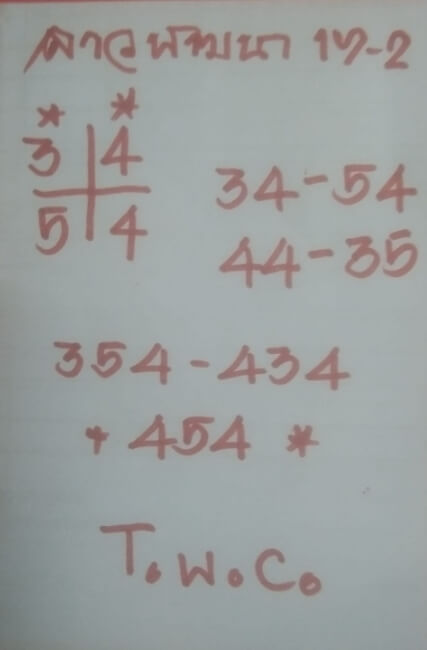 ลาวพัฒนา 17-2
* *
3 | 4
5 | 4
34-54
44-35
354-434
+ 454 *
T.W.C.